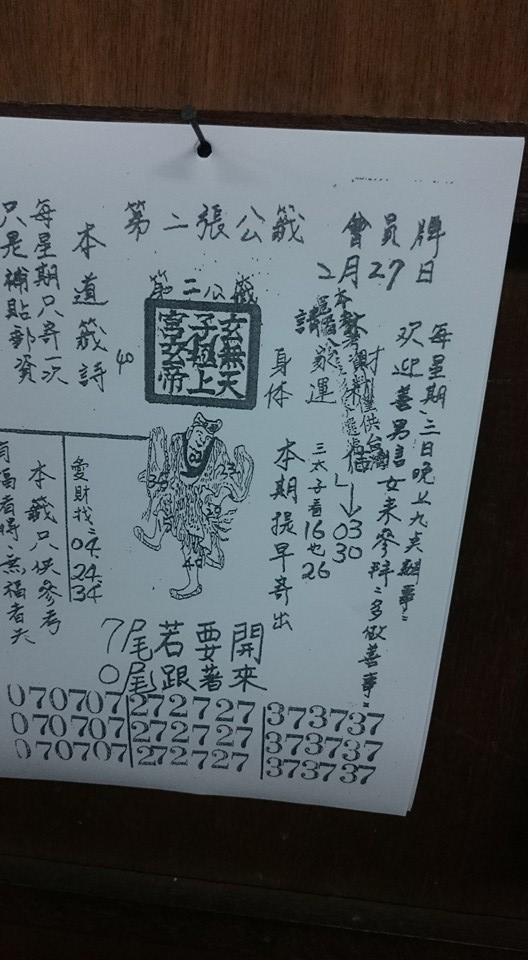 第二張公籤
會員牌
2月27日
每星期二三日晚上九天辦事
欢迎善男信女來參拜多做善事
請
運
身体
三太子看16也26
03
30
本期提早寄出
第二公籤
玄無天
子極上
宮玄帝
40
本道籤詩
每星期只寄一次
只是補貼郵資
愛財找
04
24
34
本籤只供參考
有福者得無福者失
7尾若要開
0尾跟著來
070707 272727 373737
070707 272727 373737
070707 272727 373737